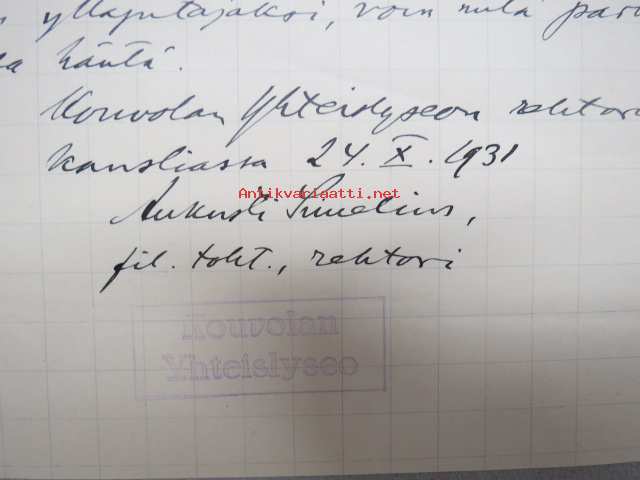 ylläpitäjäksi, voin mitä par
häntä.
Kouvolan Yhteislyseon rehtori
kansliassa 24. X. 1931
Antikvariaatti.net
Aukusti Simelius,
fil. toht., rehtori
Kouvolan
Yhteislyseo